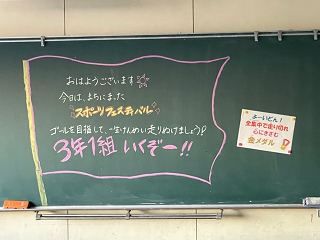 おはようございます
今日は、まちにまった
スポーツフェスティバル
ゴールを目指して、一生けんめい走りぬけましょう！
3年1組 いくぞー！！
よーいどん！
全集中で走り切れ
心にきざむ
金メダル